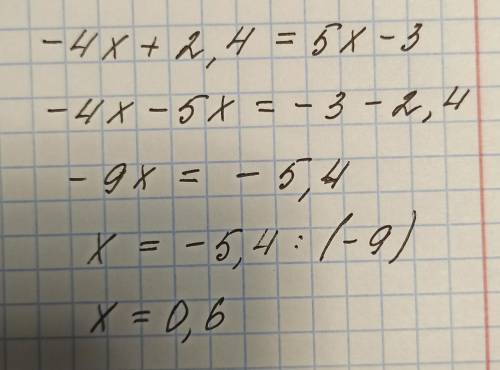 -4x + 2,4 = 5x - 3
-4x - 5x = -3 - 2,4
-9x = -5,4
x = -5,4 : (-9)
x = 0,6